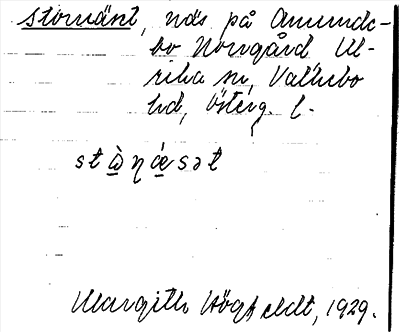 stornäset, näs på Amunde-
bo Norrgård Ul-
rika sn, Valkebo
hd, Österg. l.
Margith Högfeldt, 1929.